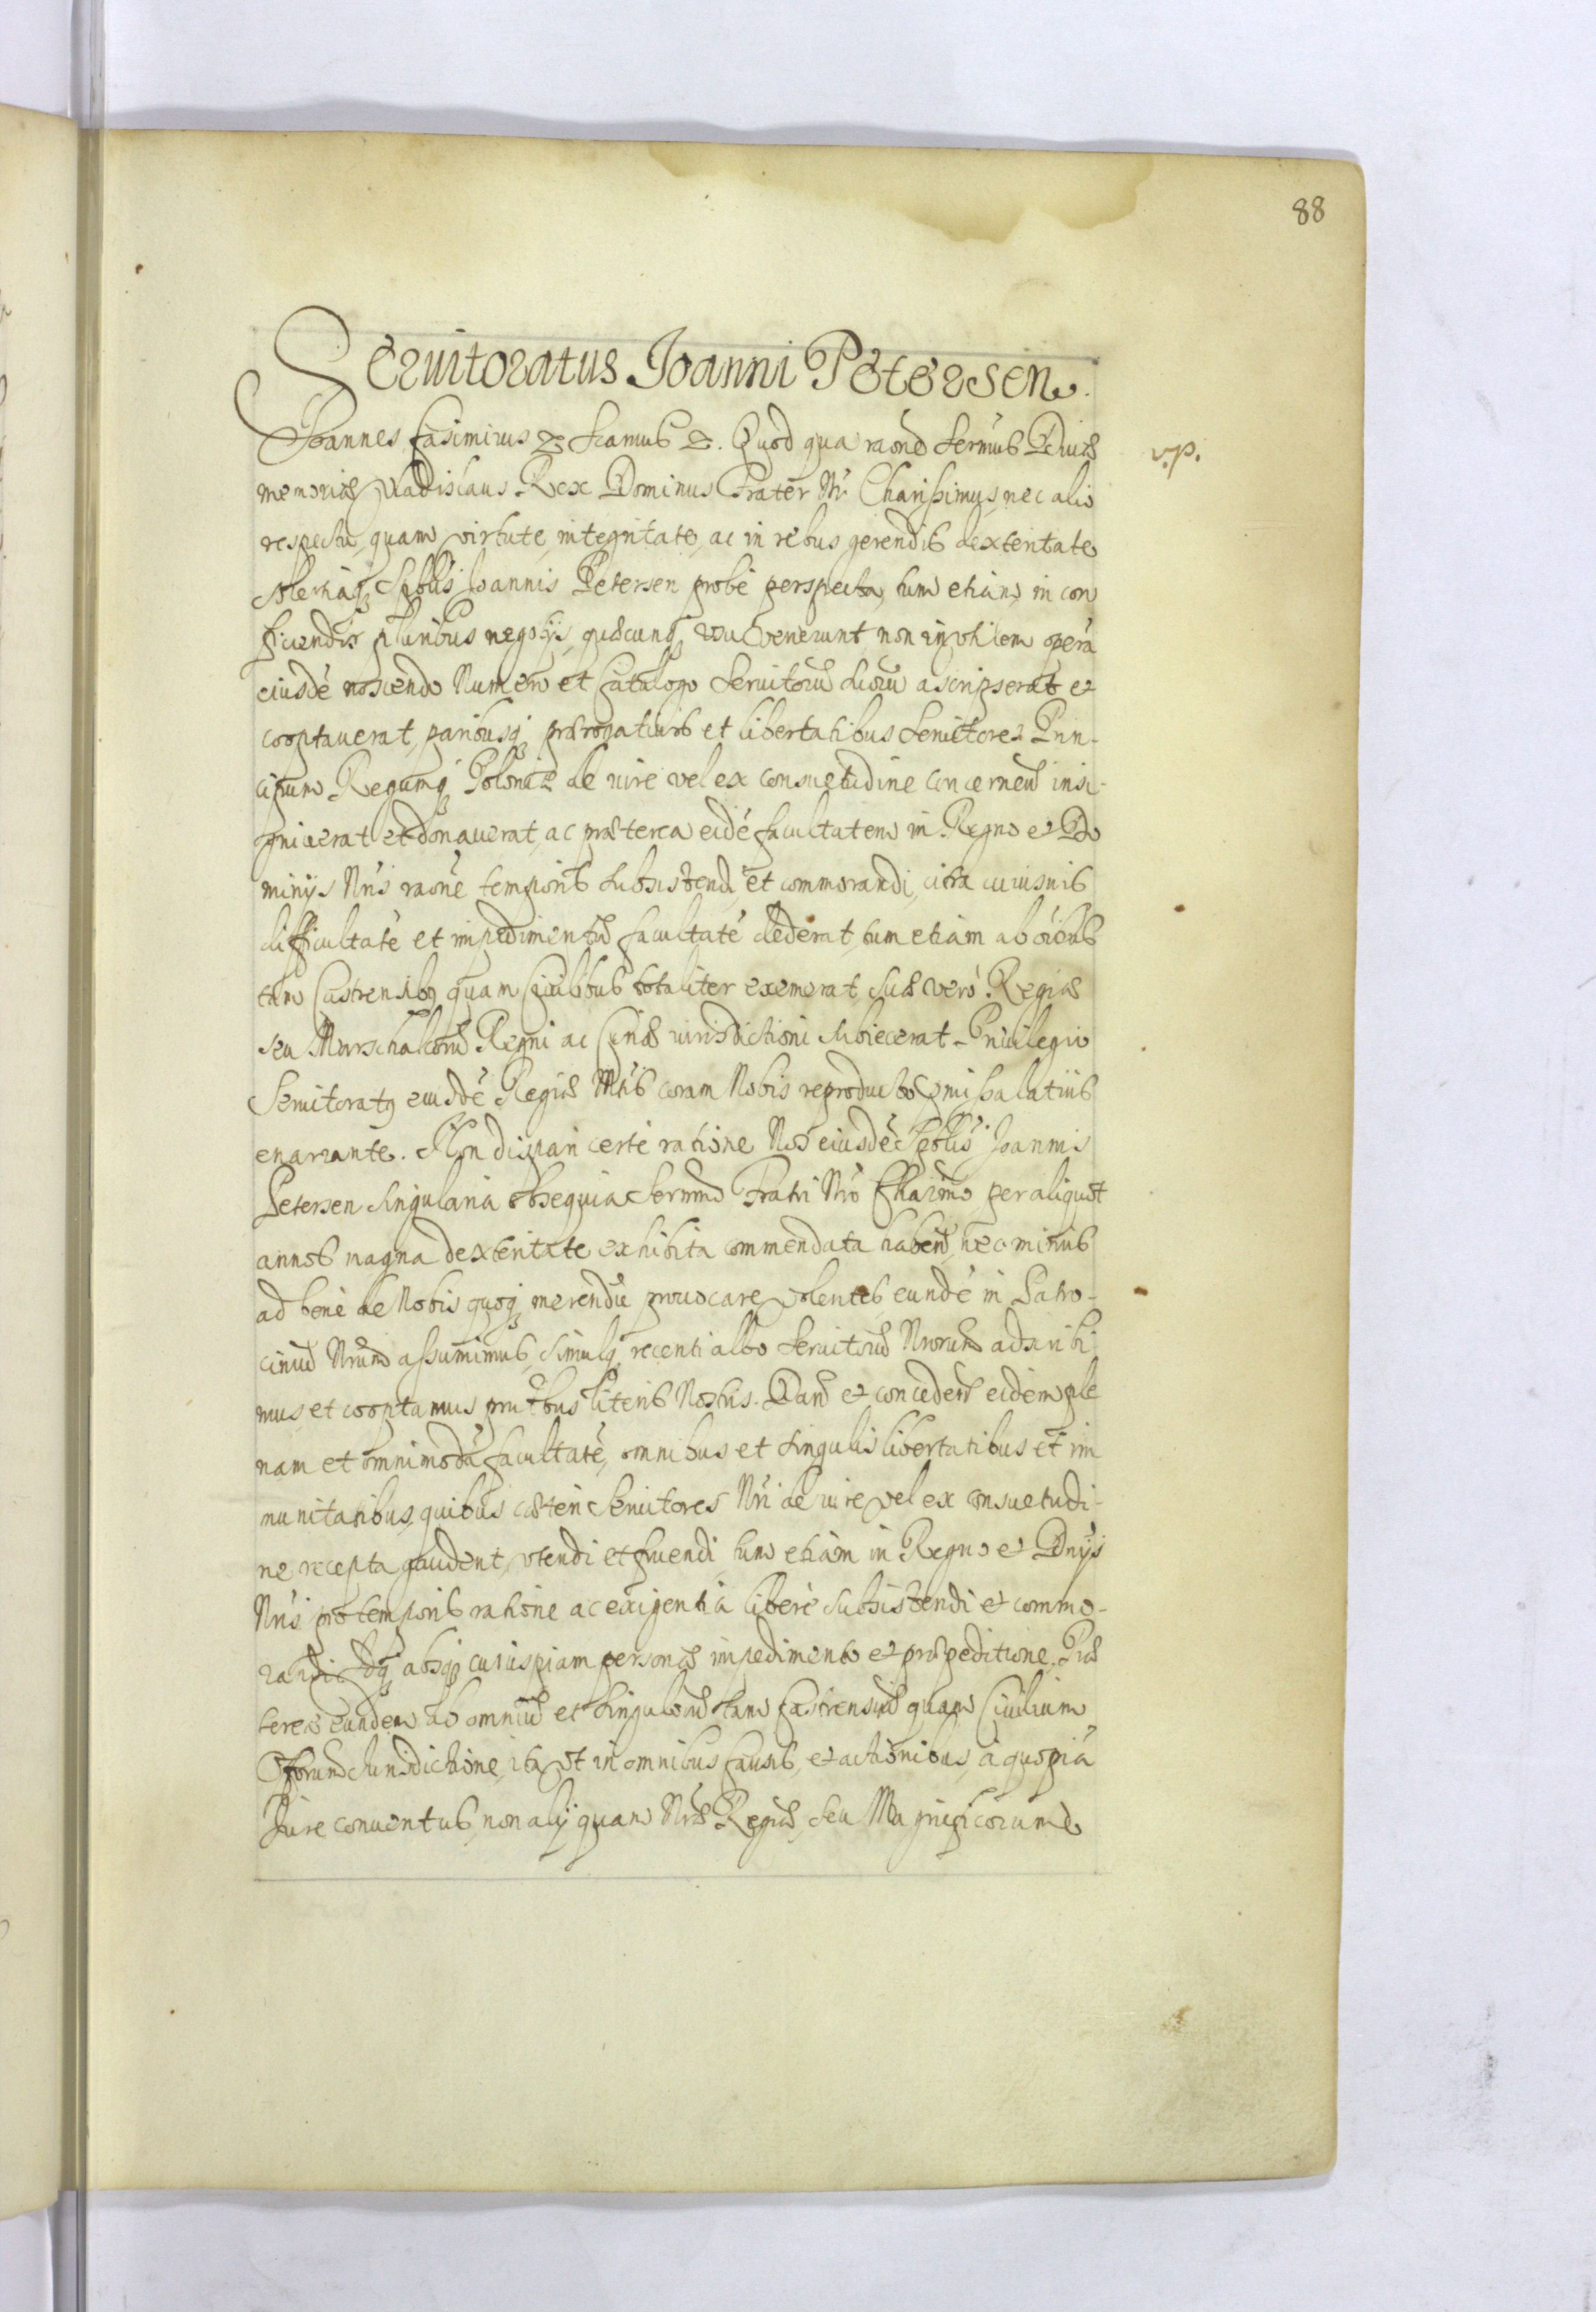 88
Seruitoratus Joanni Petersen.
Joannes Casimirus &c. Significamus &c. Quod qua raõne Sermus Diuæ
v.p.
memoriæ Vladislaus Rex Dominus Frater Nr̃ Charissimus, nec alio
respectu, quam virtute, integritate, ac in rebus gerendis dexteritate
solertiaq; Spblis Joannis Petersen probè perspecta, tum etiam in con
ficiendis pluribus negotijs, quæcunq; usu venerunt non inutilem operã
eiusdẽ noscendo Numero et Catalogo Seruitorũ suorũ ascripserat et
cooptauerat, paribusq; prærogatiuis et libertatibus Seruitores Prin-
cipum Regumq; Poloniæ de iure vel ex consuetudine concernen̄ insi-
gniuerat et donauerat, ac præterea eidẽ facultatem in Regno et Do
minijs Nr̃is raõne temporis subsistendi et commorandi, citra cuiusuis
difficultatẽ et impedimentũ facultatẽ dederat, tum etiam ab oĩbus
tam Castrensibq; quam Ciuilibus totaliter exemerat, suæ verò Regiæ
seu Marschalcorũ Regni ac Curiæ iurisdictioni subiecerat. Priuilegio
Seruitoratq; eiusdẽ Regiæ Mtis coram Nobis reproducto præmissa latius
enarrante. Non dispari certè ratione Nos eiusdẽ Spblis Joannis
Petersen singularia obsequia Sermo Fratri Nr̃o Charmo per aliquot
annos magna dexteritate exhibita commendata haben̄, nec minus
ad benè de Nobis quoq; merendũ prouocare volentes, eundẽ in Patro-
ciniũ Nr̃um assumimus, simulq; recenti albo Seruitorũ Nr̃orum adscribi
mus et cooptamus prñtibus literis Nostris. Dan̄ et conceden̄ eidem ple
nam et omnimodã facultatẽ, omnibus et singulis libertatibus et im
munitatibus, quibus cæteri Seruitores Nr̃i de iure vel ex consuetudi-
ne recepta gaudent, vtendi et fruendi, tum etiam in Regno et Dnijs
Nr̃is pro temporis ratione ac exigentia liberè subsistendi et commo-
randi idq; absq; cuiuspiam personæ impedimento et præpeditione. Præ
terea eundem ab omniũ et singulorũ tam Castrensiũ quam Ciuilium
Offorum Iurisdictione, ita vt in omnibus causis, et actionibus, à quopiã
Iure conuentus, non alij quam Nr̃æ Regiæ, seu Magnificorum